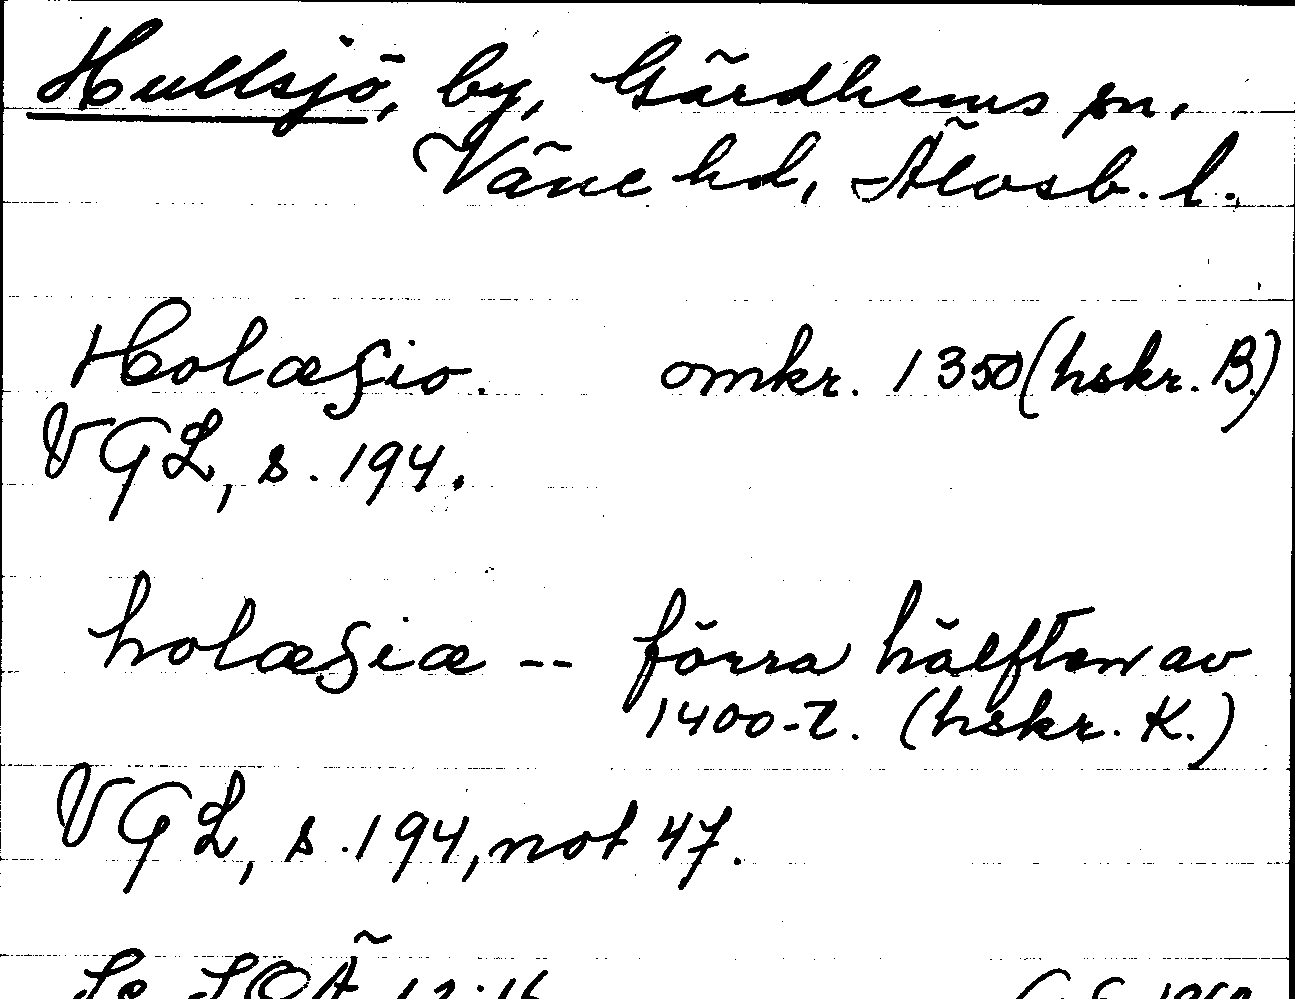 Hullsjö, by, Gärdhems sn,
Väne hd, Älvsb. l.
Holæsio. omkr. 1350 (hskr. B.)
VGL, s. 194.
holæsiæ -- förra hälften av
1400-t. (hskr. K.)
VGL, s. 194, not 47.
Se SOÄ 12:16